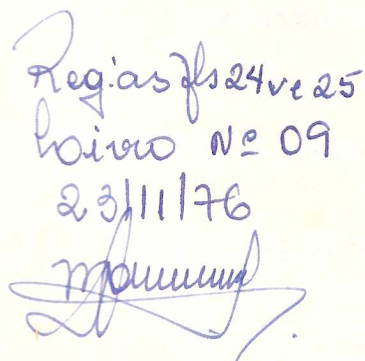 Reg. as fls 24 v e 25
Livro Nº 09
23/11/76